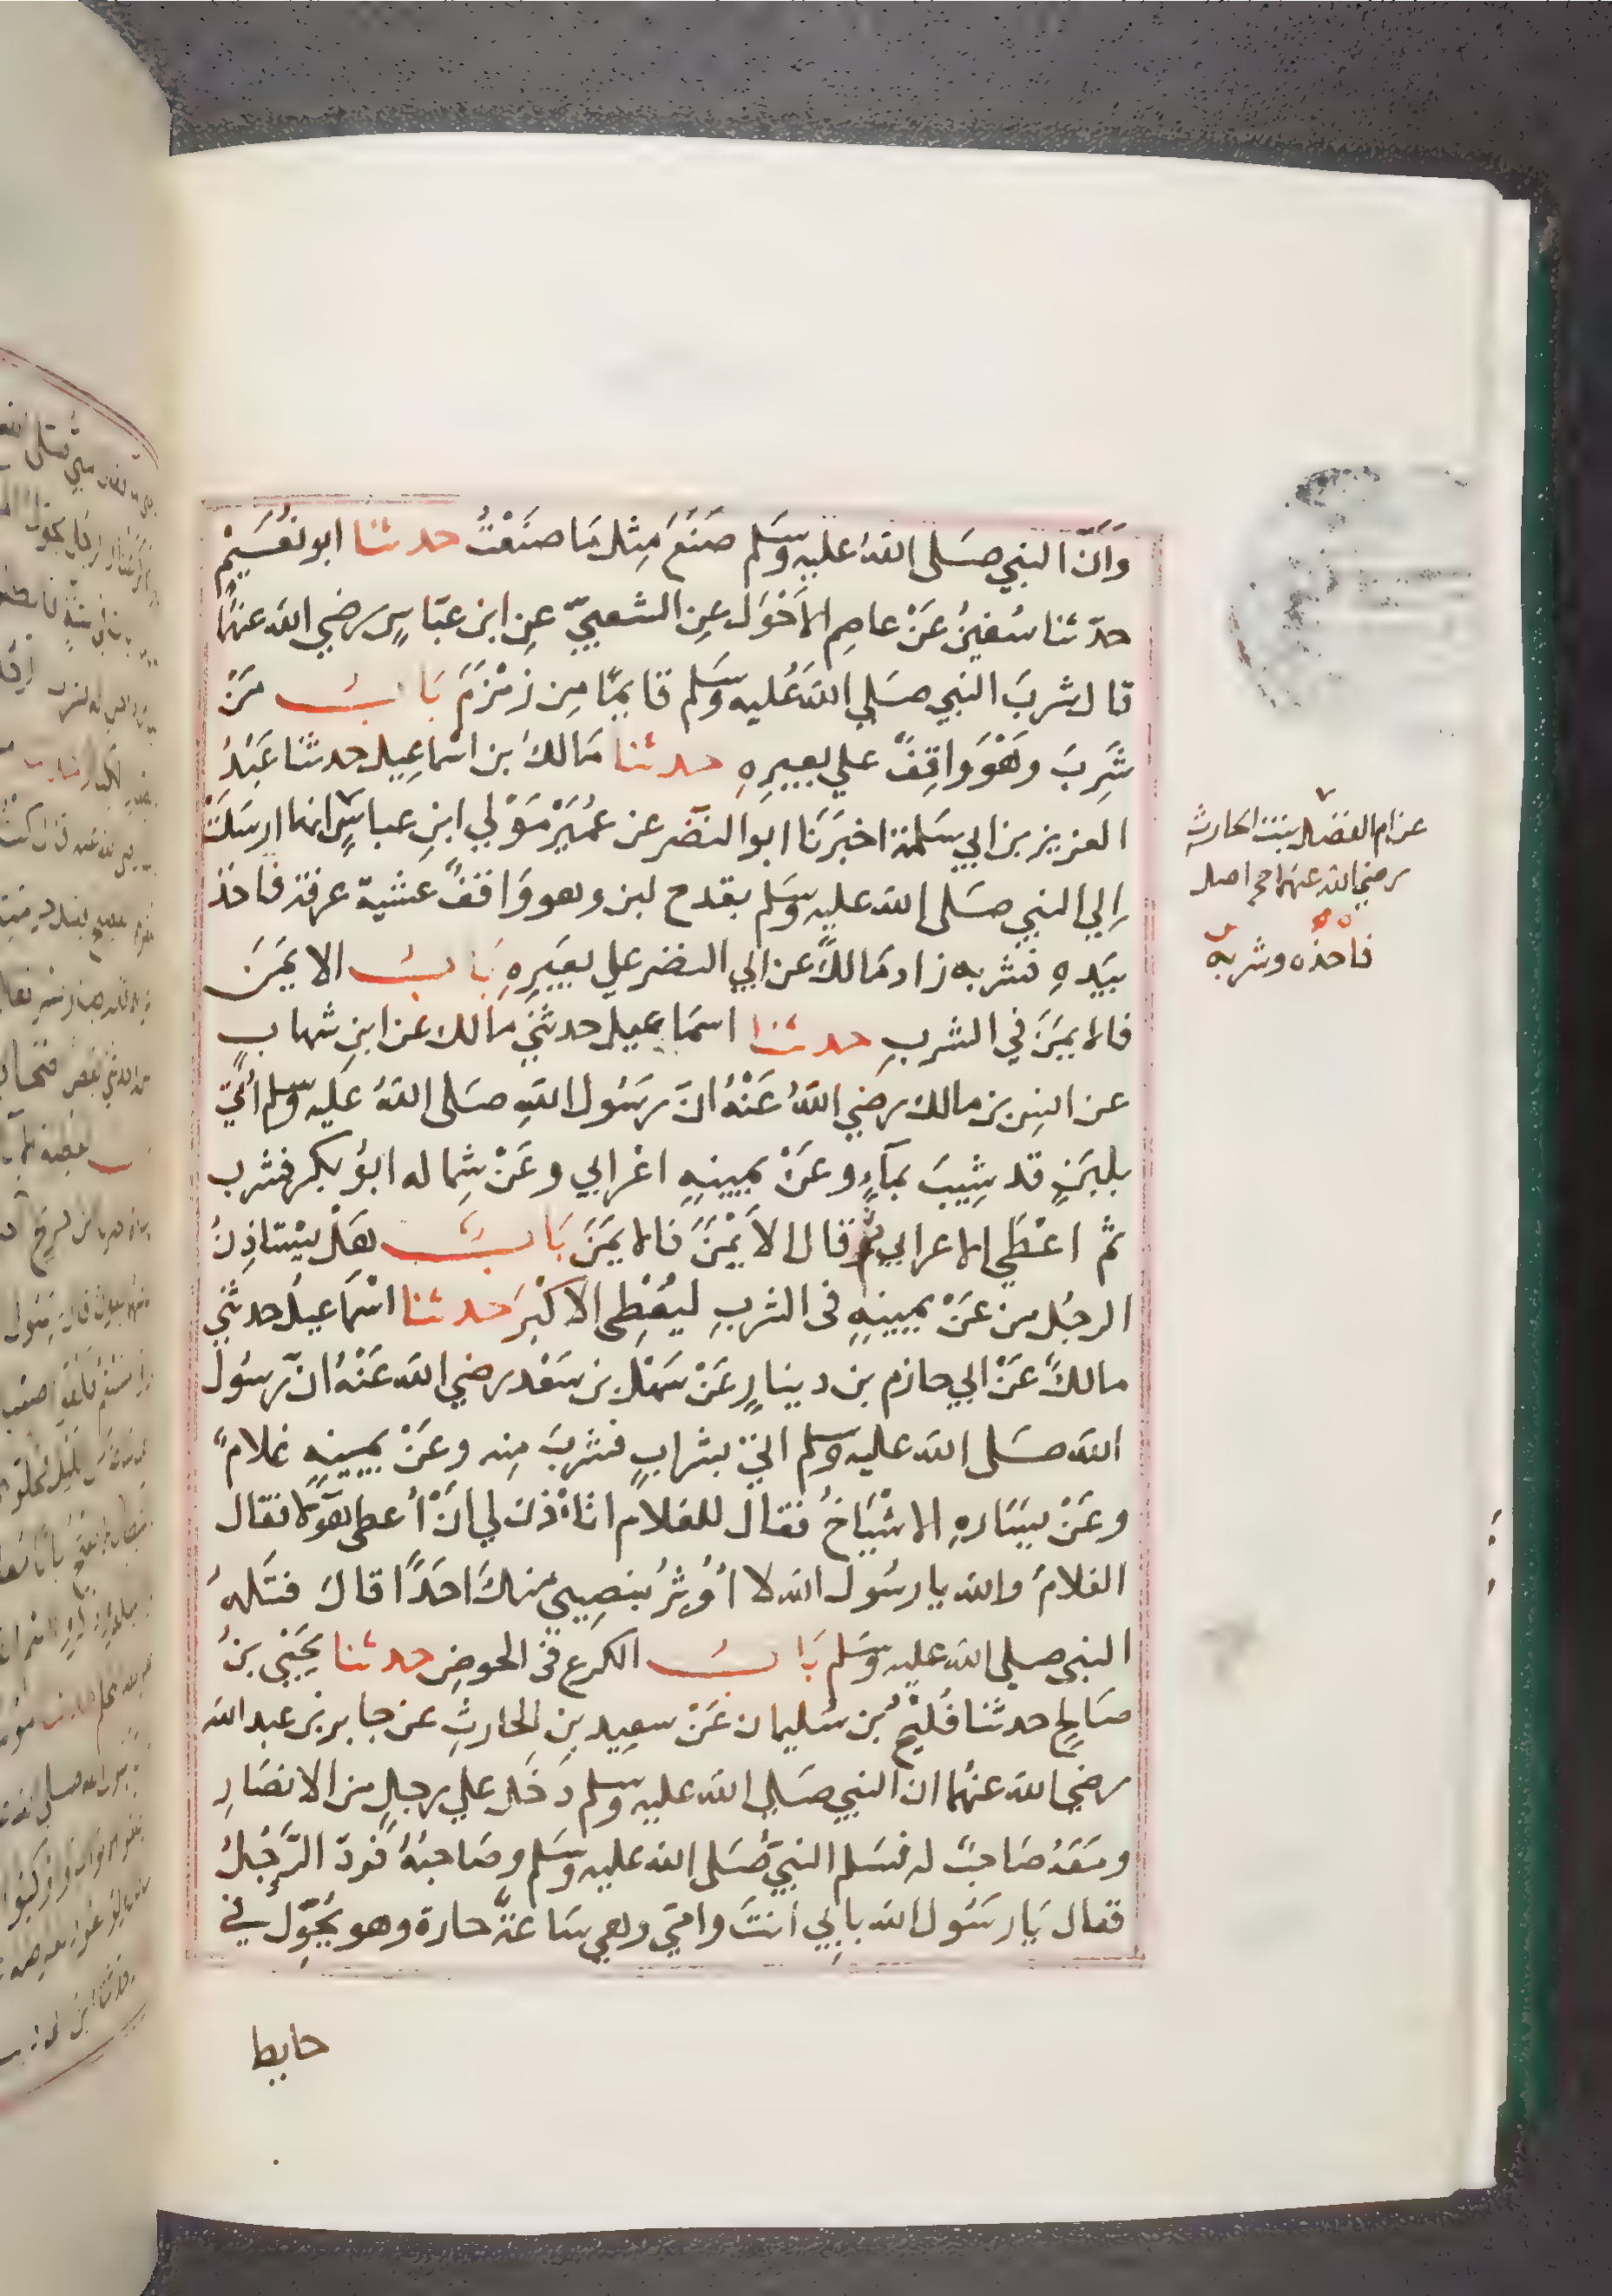 وَاَنّ النبي صَلى اللهُ عليه وسَلم صَنَعَ مِثْل مَا صنَعْتُ حدثنا ابو نُعَيمْ
حدّثنا سُفينُ عَنْ عاصِم الأحْوَل عِن الشعبيّ عِن ابن عبّاسٍ رضي الله عنهُما
قال شربَ النبي صَلي الله عُليه وسَلم قايمًا مِن زمْزَمَ بَابُ مَنْ
شَرِبَ وهْوَ وَاقِفً علي بعيرِهِ حدثنا مَالكُ بن اسْماعِيل حدثنا عَبْدُ
العزيز بن ابي سَلمة اخبَرَنَا ابو النضر عن عُمَيْر مَوْلي ابنِ عباسٍ انها ارسَلَتْ
اِلي النبي صَلى الله عليهِ وسَلم بقدح لبن وهو وَاقفً عشيةَ عرفة فاخذ
بيَدهِ فشربه زاد مَالكً عن ابي النضر علي بعَيرِهِ بَابُ الايمَنَ
فالايمَنَ في الشربِ حدثنا اسمَاعيل حدثني مالك عن ابنِ شهاب
عن انسِ بن مالك رضي اللهُ عَنْهُ انّ رسَول اللهِ صَلى اللهُ عليه وسلم اُتيَ
بلبَنٍ قد شِيبَ بمآءٍ وعَنْ يمينهِ اعْرابي وعَنْ شِماله ابوُ بكر فشرب
ثم اعْطَي الاعرابي وقال الأيْمَنَ فالايمَنَ بَابُ هَلْ يسْتاذِنُ
الرجُل من عَنْ يمينهِ في الشربِ ليُعْطِى الاكْبرَ حدثنا اسْمَاعيلُ حدثني
مالكً عَنْ ابي حازم بن دينارٍ عَنْ سَهْل بن سَعْد رضي الله عَنْهُ انّ رسُول
الله صَلى الله عليه وسلم اتيَ بشرابٍ فشربَ مِنه وعَنْ يمينهِ غلامً
وعَنْ يسَارهِ الاشْيَاخُ فقال للغلام اتاْذن لي انْ اُعطى هَوُلا فقال
الغلامُ والله يا رسُول الله لا اُوثِرُ بنصِيبي منكَ احَدًا قالَ فتَلهُ
النبي صلى الله عليه وسَلم بَابُ الكرع في الحوضِ حدثنا يَحْيَى بنُ
صَالحٍ حدثنا فُليْحُ بن سُليمان عَنْ سعِيد بنِ الحَارثِ عن جابر بن عبد الله
رضي الله عنهُما ان النبي صَلي الله عليه وسلم دَخل علي رجلٍ من الانصَارِ
ومَعَهُ صَاحبً له فسَلم النبيُّ صَلى الله عليه وسَلم وصَاحبهُ فَردّ الرَّجُلُ
فقال يَا رسَول الله بابِي انتَ وامّي وهي سَاعةً حارة وهو يُحَوّل في
حايط
عن ام الفضل بنت الحارث
رضي الله عنهما صح اصل
فاخذه وشربه